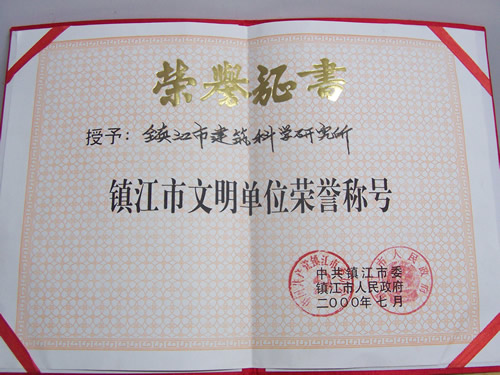 荣誉证书
授予：镇江市建筑科学研究所
镇江市文明单位荣誉称号
中共镇江市委
镇江市人民政府
二000年七月